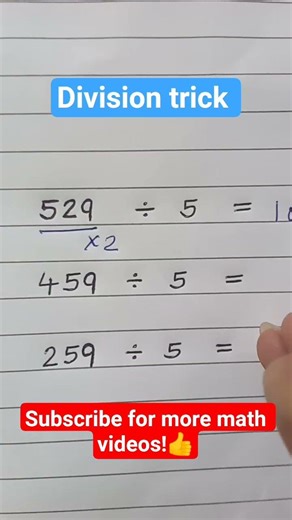 Division trick
529 ÷ 5 = 10
x2
459 ÷ 5 =
259 ÷ 5 =
Subscribe for more math
videos!👍